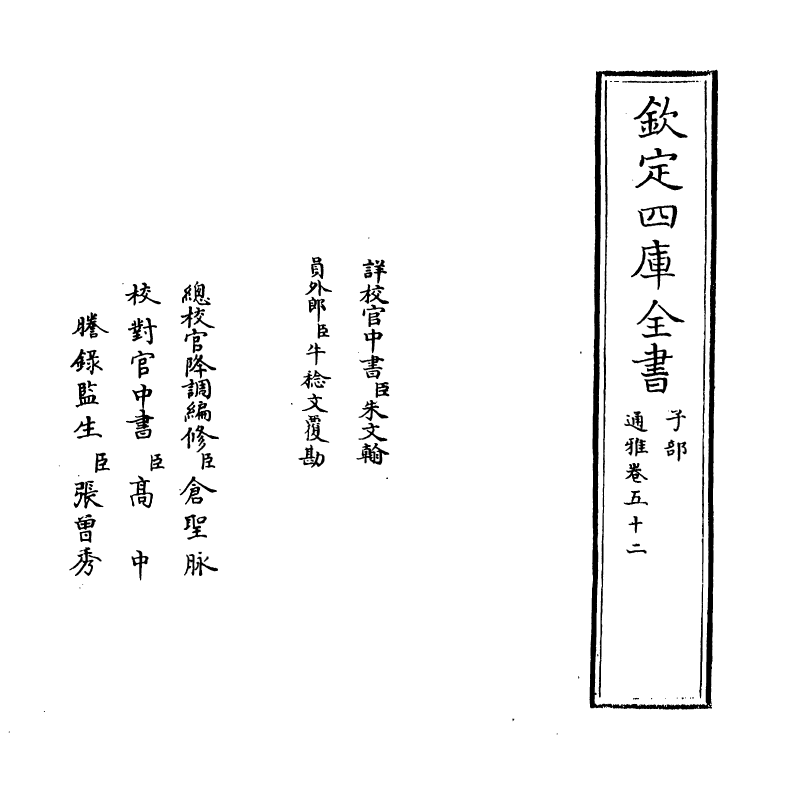 欽定四庫全書
子部
通雅卷五十二
詳校官中書臣朱文翰
員外郎臣牛稔文覆勘
總校官降調編修臣倉聖脉
校對官中書臣高中
謄錄監生臣張曾秀